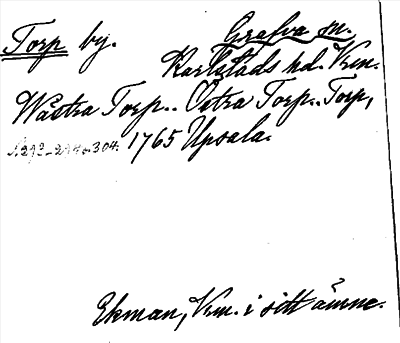 Torp by. Grafva sn.
Karlstads hd. Vrm.
Wästra Torp.. Östra Torp.. Torp,
s. 292-294 o. 304. 1765 Upsala.
Ekman, Vrm. i sitt ämne.